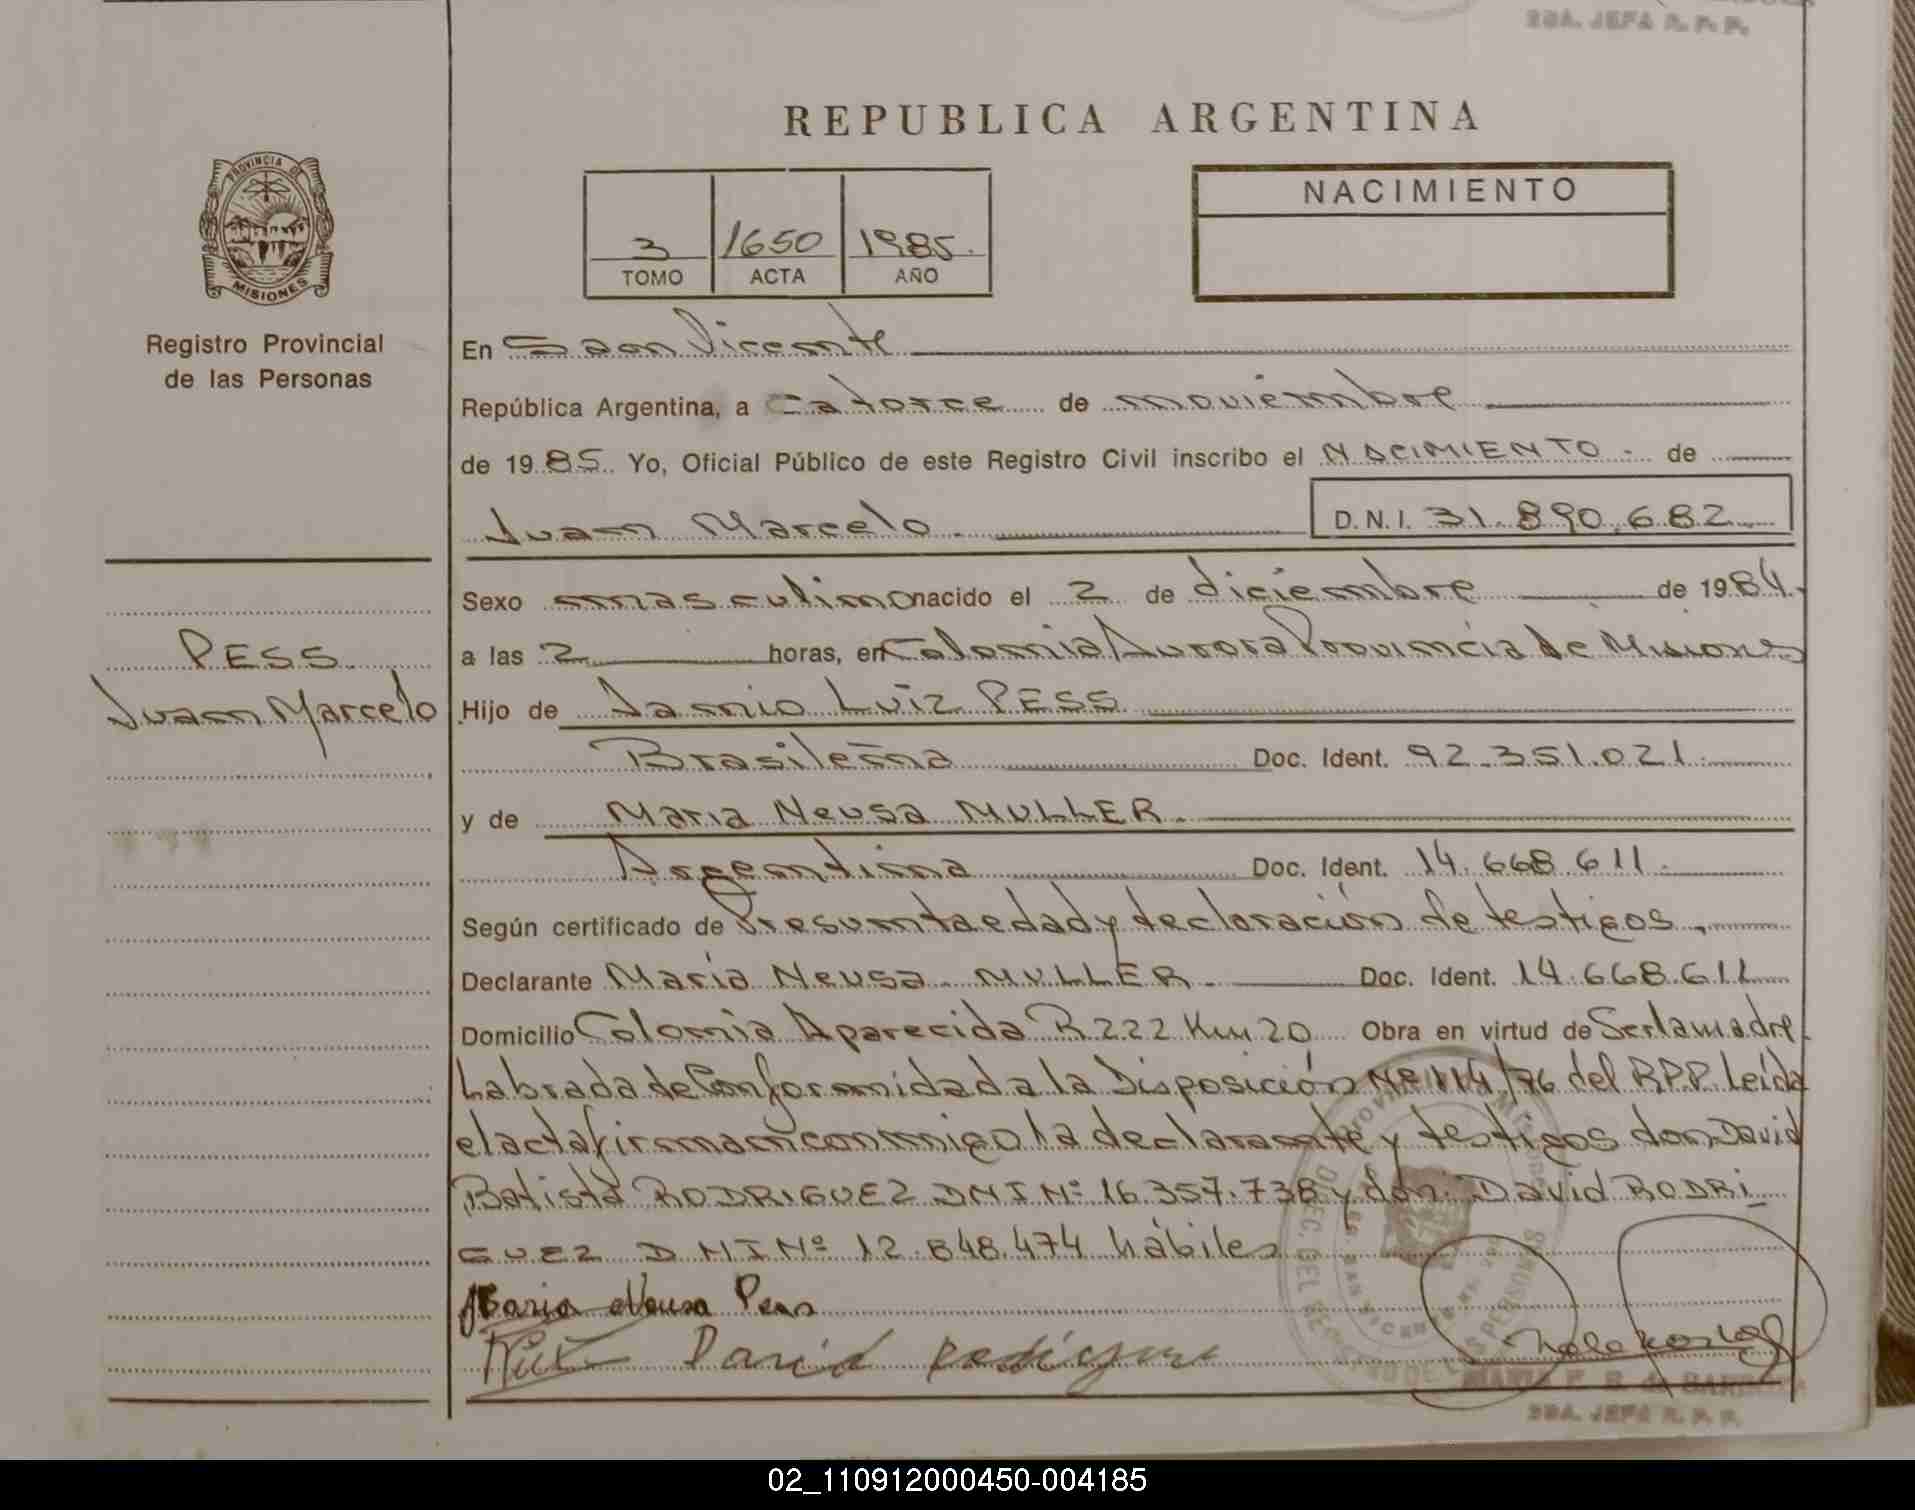 SDA. JEFA R. P. P.
REPUBLICA ARGENTINA
PROVINCIA DE
MISIONES
Registro Provincial
de las Personas
3 1650 1985.
TOMO ACTA AÑO
NACIMIENTO
En San Vicente
República Argentina, a catorce de noviembre
de 1985. Yo, Oficial Público de este Registro Civil inscribo el NACIMIENTO - de
Juan Marcelo. D.N.I. 31.890.682
Sexo masculino nacido el 2 de diciembre de 1984.
a las 2 horas, en Colonia Aurora Provincia de Misiones
PESS
Juan Marcelo
Hijo de Danio Luiz PESS
Brasileña Doc. Ident. 92.351.021.
y de Maria Neusa MULLER.
Argentina Doc. Ident. 14.668.611.
Según certificado de Presunta edad y declaración de testigos.
Declarante María Neusa MULLER. Doc. Ident. 14.668.611
Domicilio Colonia Aparecida R 222 Km 20 Obra en virtud de Ser la madre.
Labrada de Conformidad a la Disposición Nº 114/76 del R.P.P. Leída
el acta firman conmigo la declarante y testigos don David
Batista RODRIGUEZ DNI Nº 16.357.738 y don David RODRI
GUEZ DNI Nº 12.848.474 hábiles
Maria Neusa Pess
David Rodriguez
SDA. JEFA R. P. P.
02_110912000450-004185